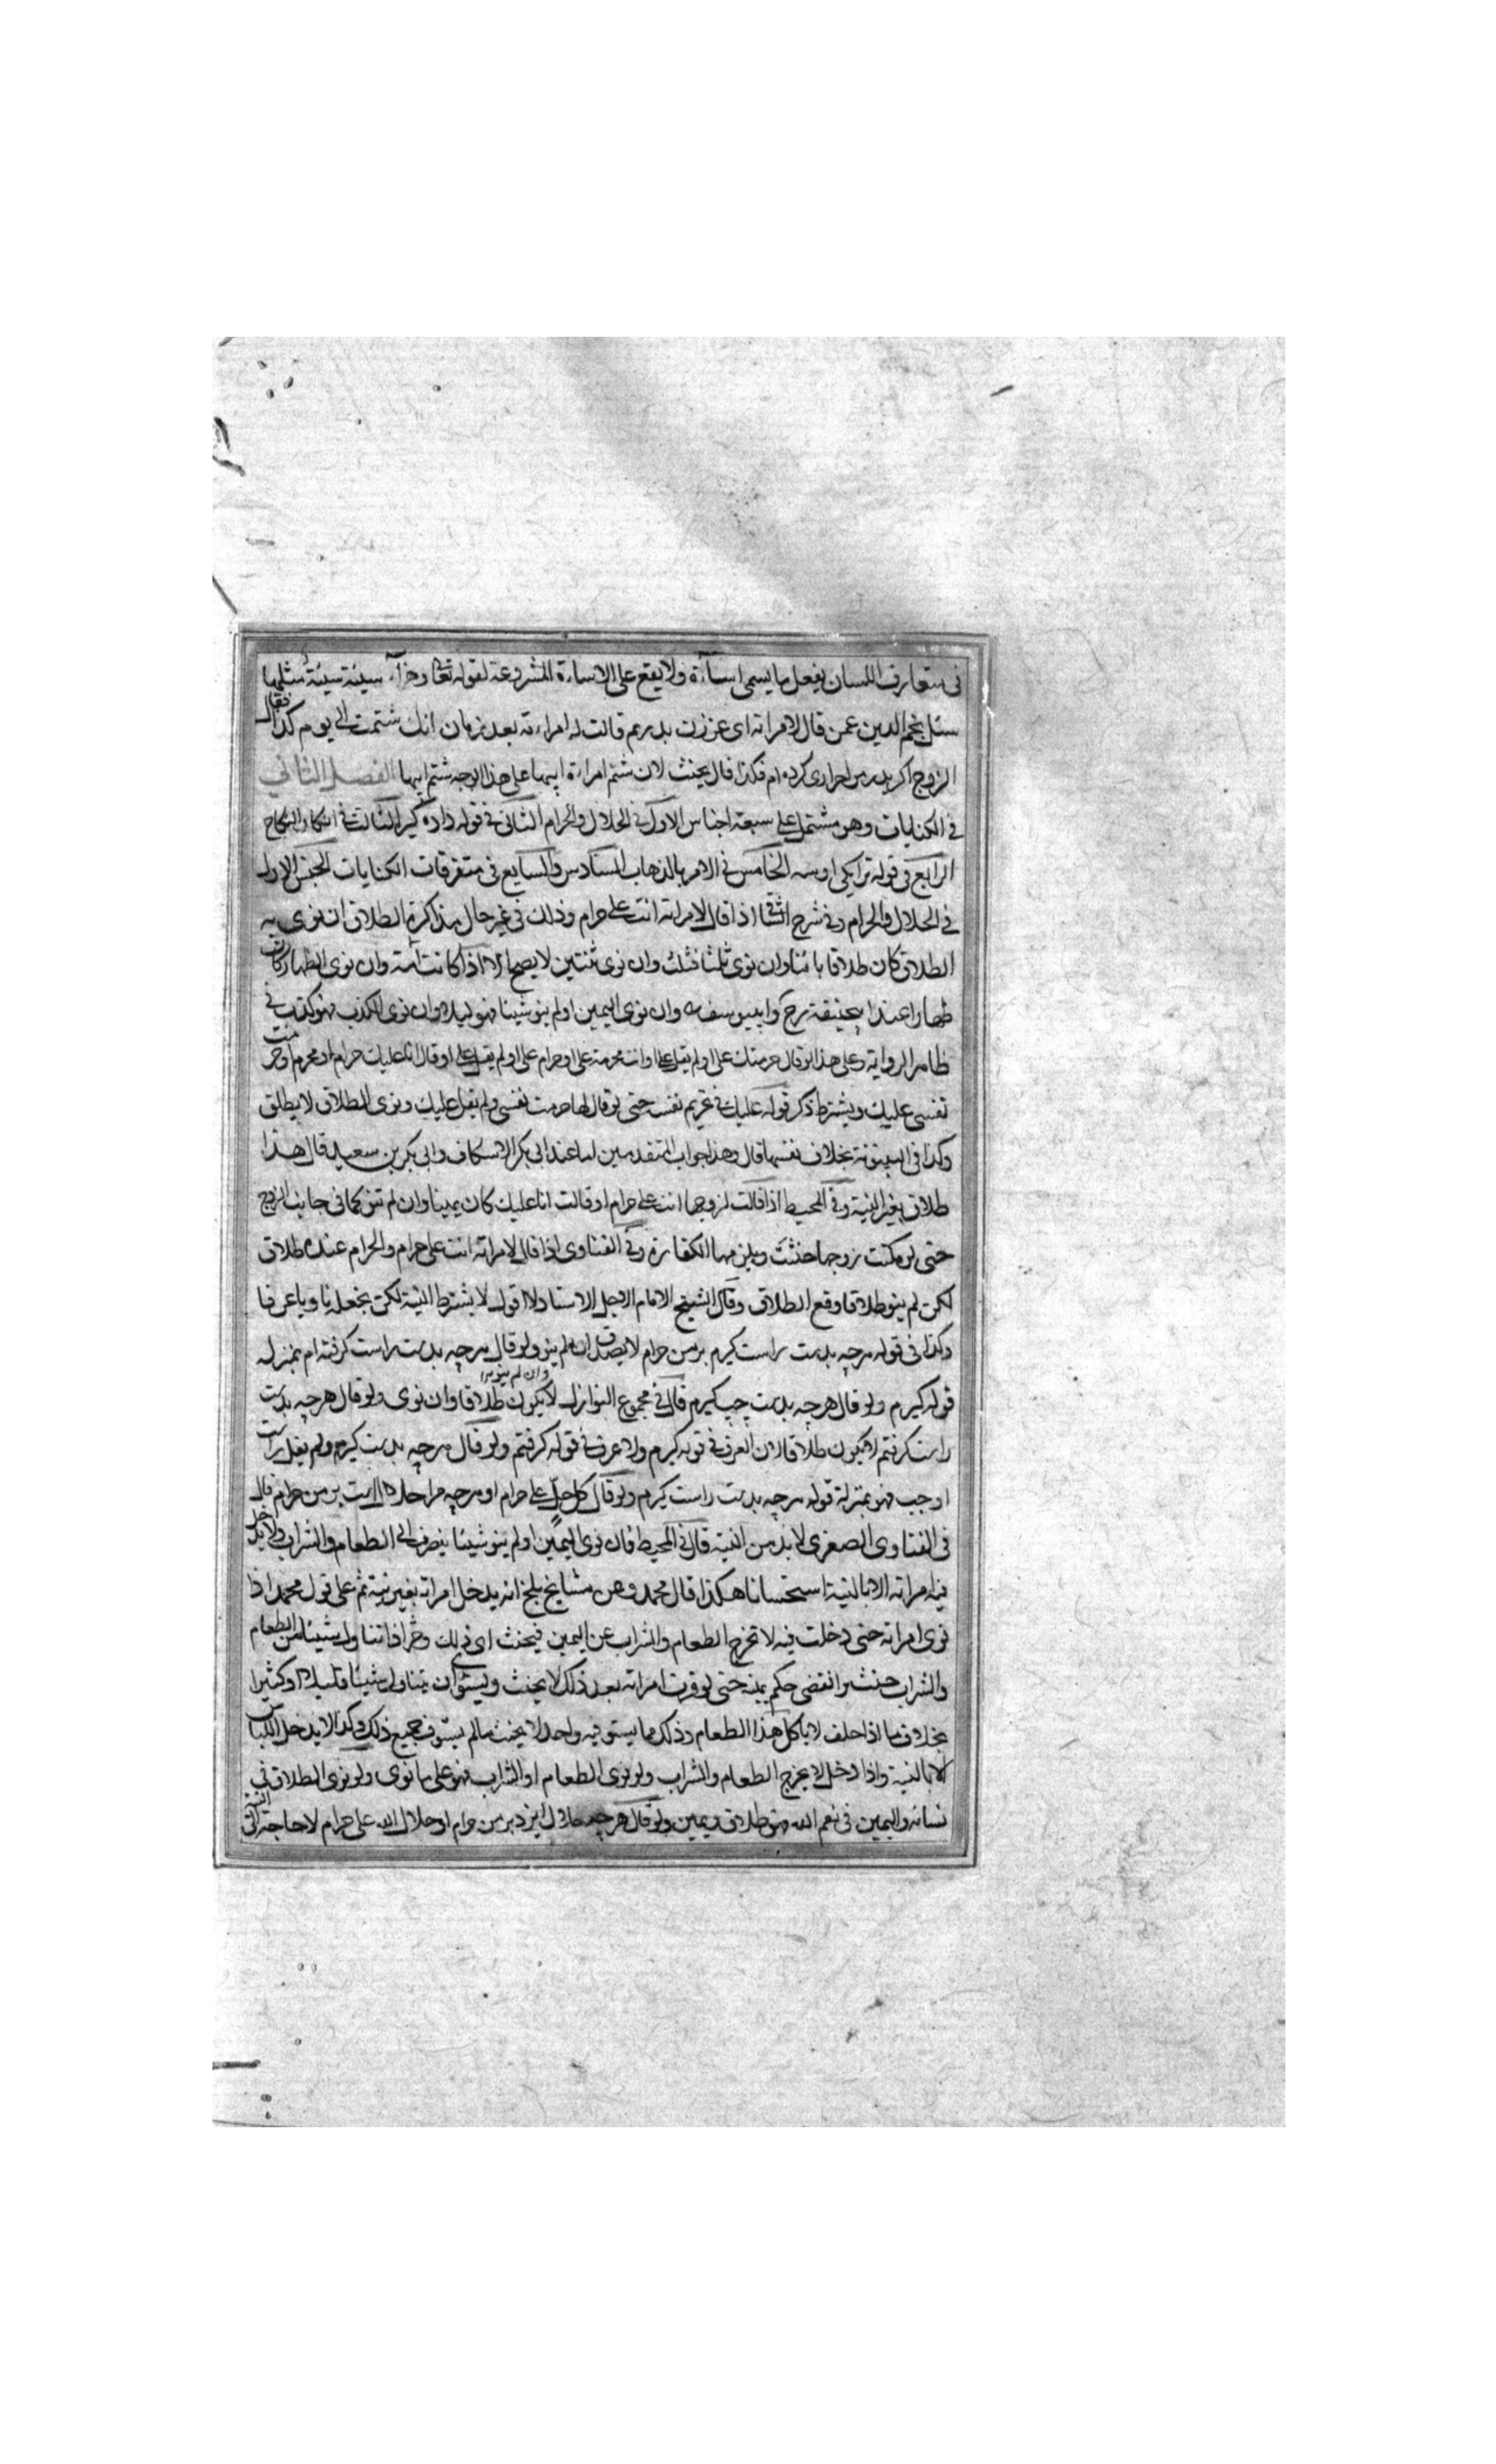 فى متعارف اللسان بفعل ما يسمى اساءة ولا يقع على الاساءة المشروعة لقوله تعا وجزاء سيئة سيئة مثلها
سئل نجم الدين عمن قال لامراته اى غرزن بدرم قالت له امراءته بعد زمان انك شتمت الى يوم كذا فقال
الزوج اكر بدرس احرارى كرده ام فكذا قال يحنث لان شتم امراءة ابيها على هذا الوجه شتم ابيها الفصل الثانى
فى الكنايات وهو مشتمل على سبعة اجناس الاول فى الحلال والحرام الثانى فى قوله داده كير الثالث فى انكار النكاح
الرابع فى قوله ترا يكى اوسه الخامس فى الامر بالذهاب السادس والسابع فى متفرقات الكنايات الجنس الاول
فى الحلال والحرام وفى شرح الشافى اذا قال لامراته انت على حرام وذلك فى غير حال مذاكرة الطلاق ان نوى به
الطلاق كان طلاقا بائنا وان نوى ثلثا فثلث وان نوى ثنتين لا يصح الا اذا كانت امة وان نوى الظهار كان
ظهارا عند ابيحنيفة رح وابيوسف وان نوى اليمين او لم ينو شيئا فهو ايلاء وان نوى الكذب فهو كذب فى
ظاهر الرواية وعلى هذا لو قال حرمتك على او لم يقل على او انت محرمة على او حرام على او لم يقل على او قال انا عليك حرام او محرم او حرمت
نفسى عليك ويشترط ذكر قوله عليك فى تحريم نفسه حتى لو قال لها حرمت نفسى ولم يقل عليك ونوى الطلاق لا يطلق
وكذا فى البينونة بخلاف نفسها قال وهذا جواب المتقدمين اما عند ابى بكر الاسكاف وابى بكر بن سعيد قال هذا
طلاق بغير النية وفى المحيط اذا قالت لزوجها انت على حرام او قالت انا عليك كان يمينا وان لم تنو كما فى جانب الزوج
حتى لو مكنت زوجها حنثت ويلزمها الكفارة وفى الفتاوى اذا قال لامراته انت على حرام والحرام عنده طلاق
لكن لم ينو طلاقا وقع الطلاق وقال الشيخ الامام الاجل الاستاد لا اقول لا يشترط النية لكن يجعل ناويا عرفا
وكذا فى قوله هرچه بدست راست كيرم بر من حرام لا يصدق انه لم ينو ولو قال هرچه بدست راست كرفته ام بمنزلة
قوله كيرم ولو قال هرچه بدست چپ كيرم قال فى مجموع النوازل لا يكون طلاقا وان نوى ولو قال هرچه بدست
وان لم ينو
راست كرفتم لا يكون طلاقا لان العرف فى قوله كيرم ولا عرف فى قوله كرفتم ولو قال هرچه بدست كيرم ولم يقل راست
او چپ فهو بمنزلة قوله هرچه بدست راست كيرم ولو قال كل حل على حرام او هرچه مرا حلال است بر من حرام قال
فى الفتاوى الصغرى لا بد من النية قال فى المحيط فان نوى اليمين او لم ينو شيئا ينصرف الى الطعام والشراب ولا يدخل
فيه امراته الا بالنية استحسانا هكذا قال محمد وعن مشايخ بلخ انه يدخل امراته بغير نية ثم على قول محمد اذا
نوى امراته حتى دخلت فيه لا تخرج الطعام والشراب عن اليمين فيحنث اى ذلك وجد اذا تناول شيئا من الطعام
والشراب حنث وانقضى حكم يمينه حتى لو قرب امراته بعد ذلك لا يحنث ويستوى ان يتناول شيئا قليلا او كثيرا
بخلاف ما اذا حلف لا ياكل هذا الطعام وذلك مما يستوفيه واحد لا يحنث مالم يستوف جميع ذلك وكذا لا يدخل اللباس
الا بالنية واذا دخل لا يخرج الطعام والشراب ولو نوى الطعام او الشراب فهو على ما نوى ولو نوى الطلاق فى
نسائه واليمين فى نعم الله فهو طلاق ويمين ولو قال هرچه حلال ايزد بر من حرام او حلال الله على حرام لا حاجة الى النية